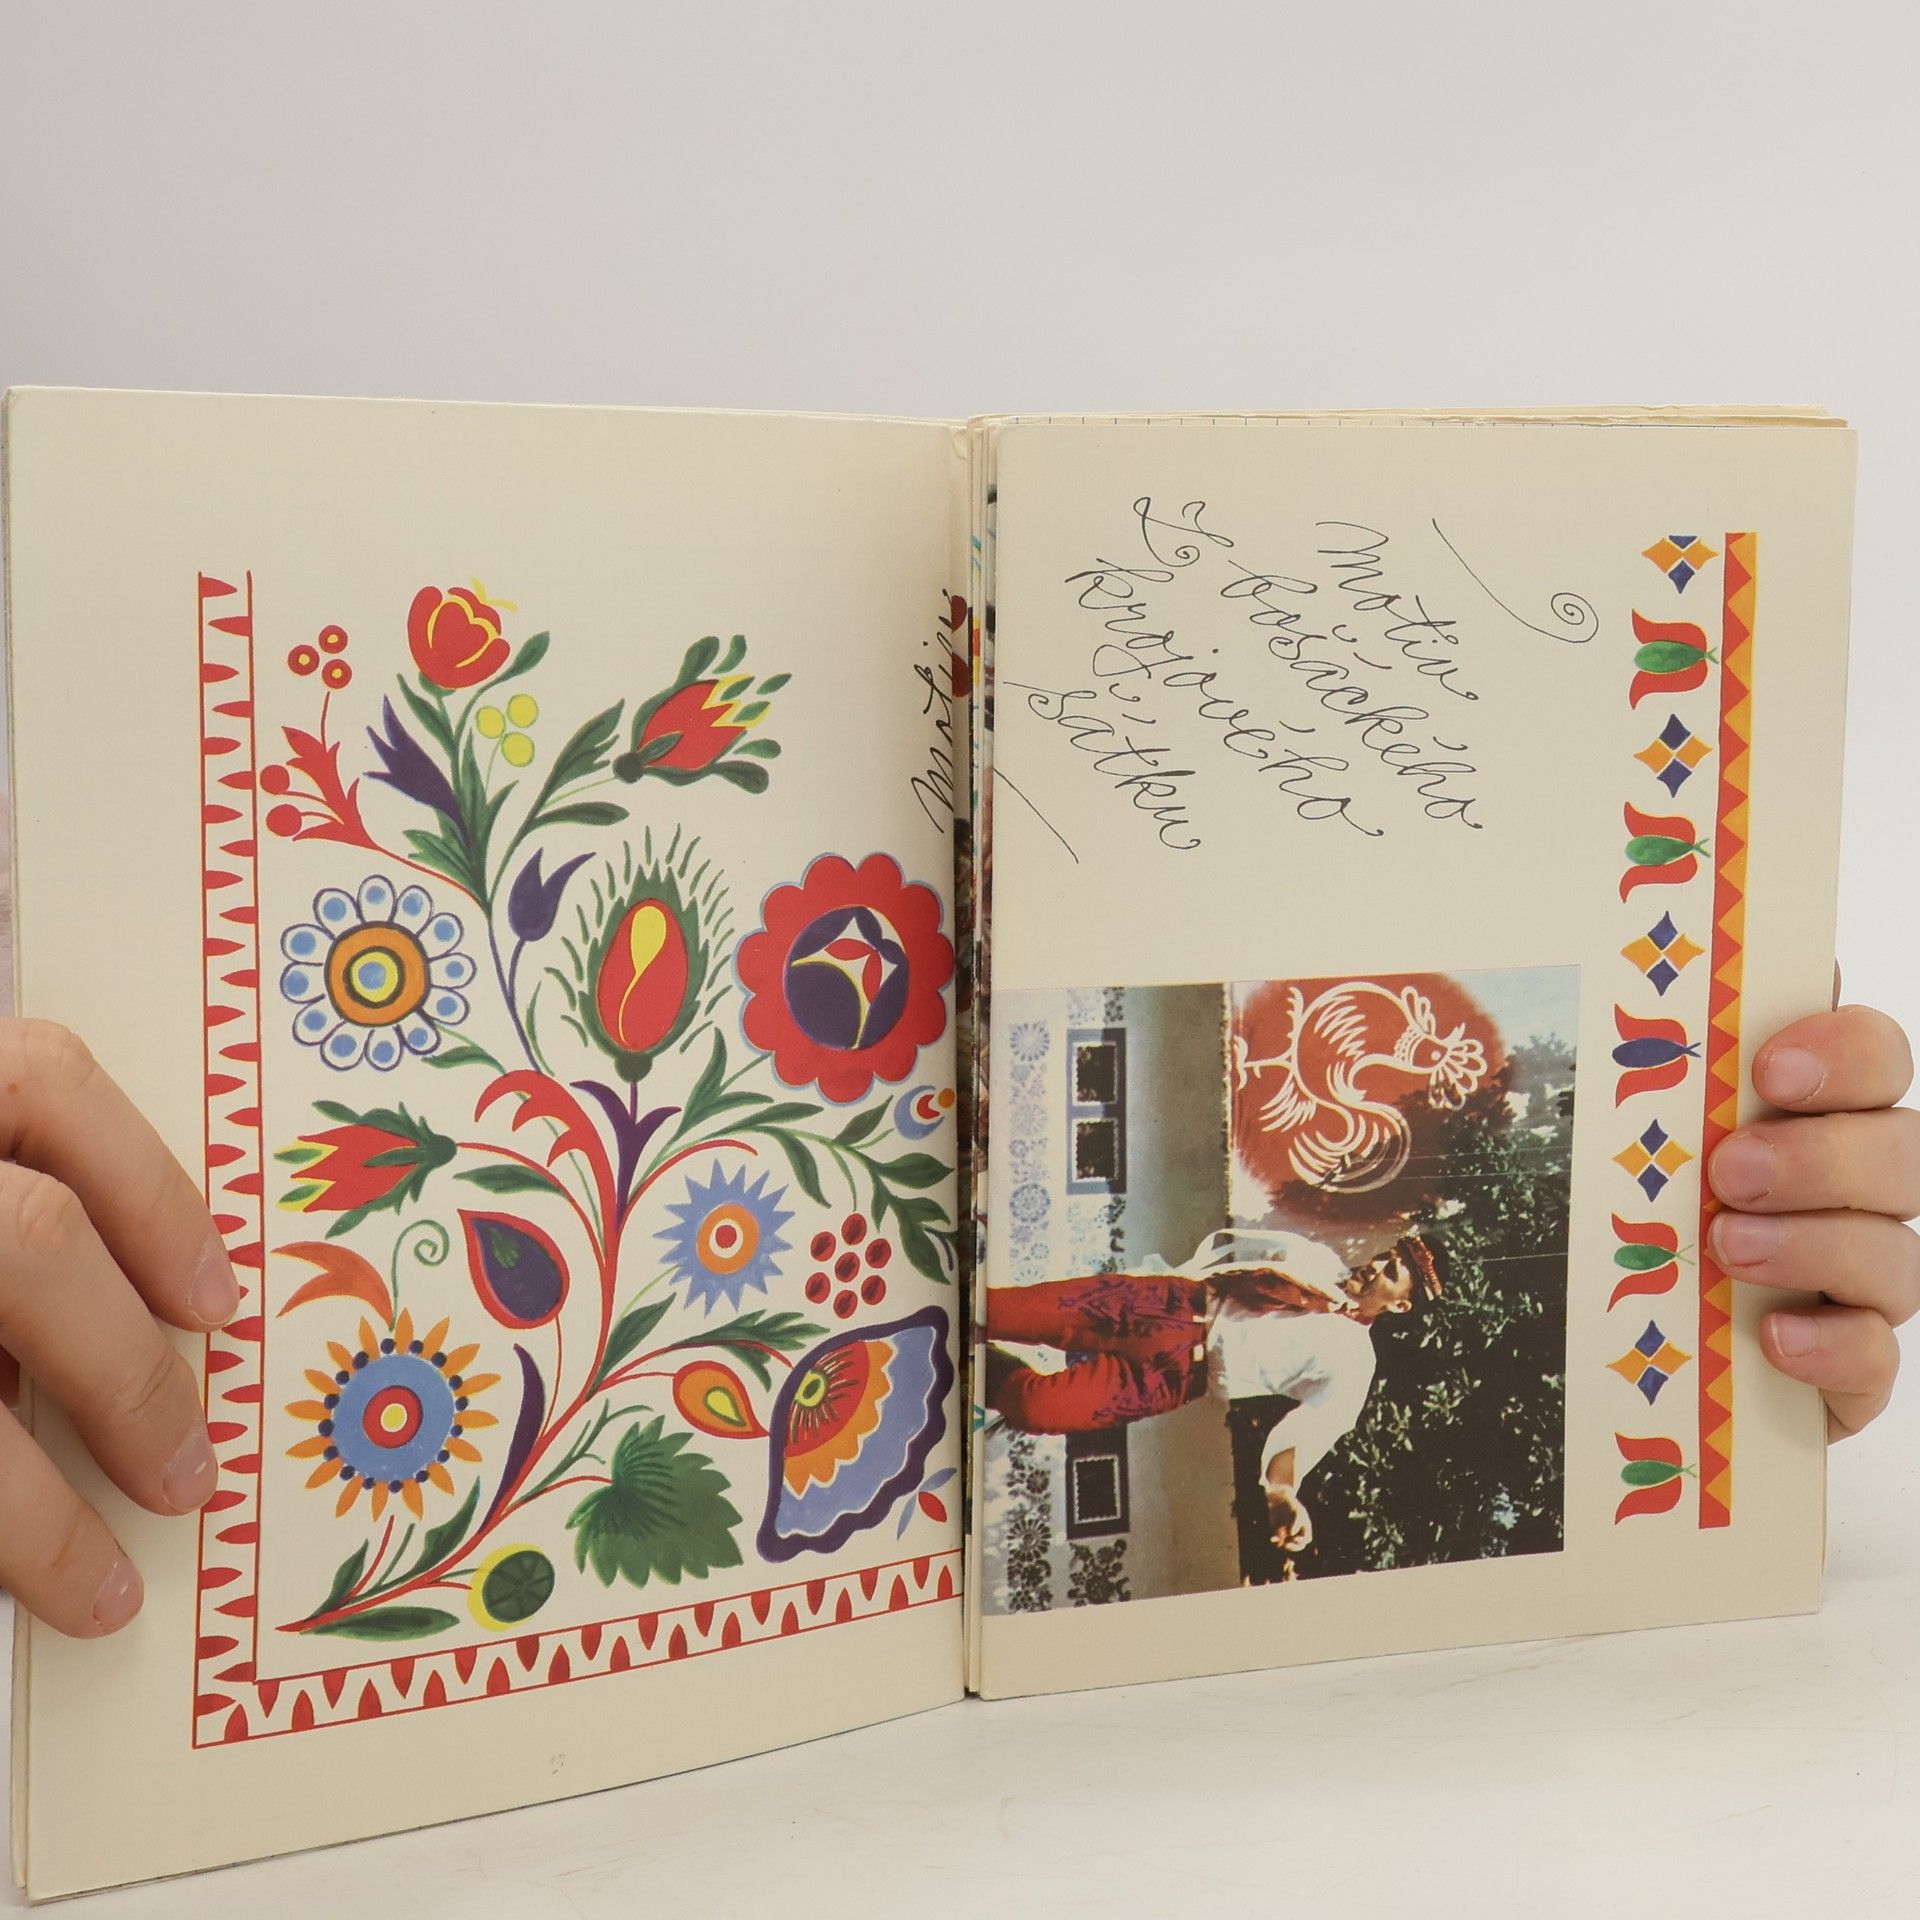 Motiv
Motiv
z bošáckého
krojového
šátku